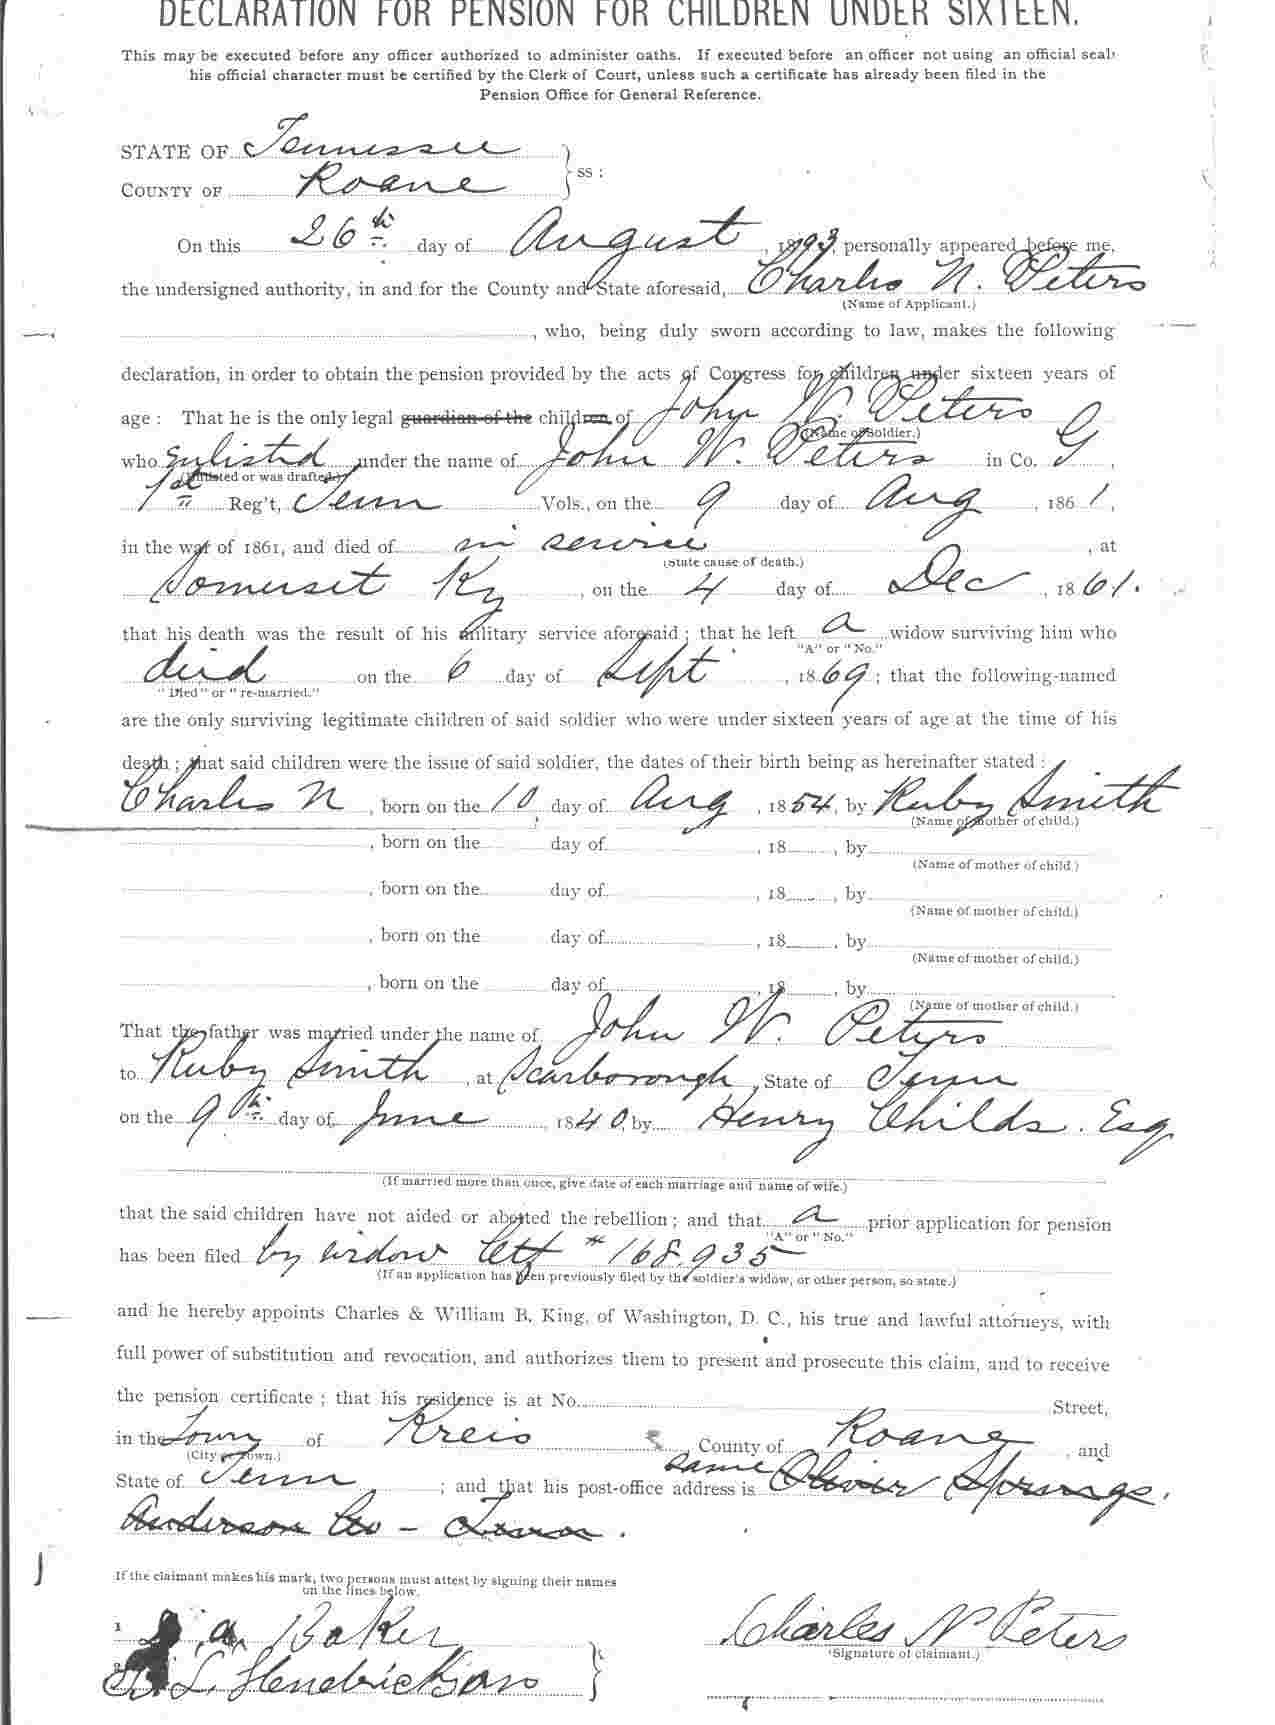 DECLARATION FOR PENSION FOR CHILDREN UNDER SIXTEEN.
This may be executed before any officer authorized to administer oaths. If executed before an officer not using an official seal
his official character must be certified by the Clerk of Court, unless such a certificate has already been filed in the
Pension Office for General Reference.
STATE OF Tennessee
COUNTY OF Roane } ss :
On this 26th day of August, 1893, personally appeared before me,
the undersigned authority, in and for the County and State aforesaid, Charles N. Peters
(Name of Applicant.)
, who, being duly sworn according to law, makes the following
declaration, in order to obtain the pension provided by the acts of Congress for children under sixteen years of
age : That he is the only legal guardian of the children of John W. Peters
(Name of Soldier.)
who enlisted under the name of John W. Peters in Co. G,
(Enlisted or was drafted.)
1st Reg't, Tenn Vols., on the 9 day of Aug, 1861,
in the war of 1861, and died of in service, at
(State cause of death.)
Somerset Ky, on the 4 day of Dec, 1861.
that his death was the result of his military service aforesaid ; that he left a widow surviving him who
"A" or "No."
died on the 6 day of Sept, 1869 ; that the following-named
"Died" or "re-married."
are the only surviving legitimate children of said soldier who were under sixteen years of age at the time of his
death ; that said children were the issue of said soldier, the dates of their birth being as hereinafter stated :
Charles N, born on the 10 day of Aug, 1854, by Ruby Smith
(Name of mother of child.)
, born on the day of , 18 , by
(Name of mother of child.)
, born on the day of , 18 , by
(Name of mother of child.)
, born on the day of , 18 , by
(Name of mother of child.)
, born on the day of , 18 , by
(Name of mother of child.)
That the father was married under the name of John W. Peters
to Ruby Smith, at Scarborough, State of Tenn
on the 9th day of June, 1840, by Henry Childs. Esq
(If married more than once, give date of each marriage and name of wife.)
that the said children have not aided or abetted the rebellion ; and that a prior application for pension
"A" or "No."
has been filed by widow Ctf # 168.935
(If an application has been previously filed by the soldier's widow, or other person, so state.)
and he hereby appoints Charles & William B. King, of Washington, D. C., his true and lawful attorneys, with
full power of substitution and revocation, and authorizes them to present and prosecute this claim, and to receive
the pension certificate ; that his residence is at No. Street,
in the Town of Kreis, County of Roane, and
(City or Town.)
State of Tenn ; and that his post-office address is same Oliver Springs.
Anderson Co - Tenn.
If the claimant makes his mark, two persons must attest by signing their names
on the lines below.
1 Baker
2 L. Hendrickson
Charles N Peters
(Signature of claimant.)